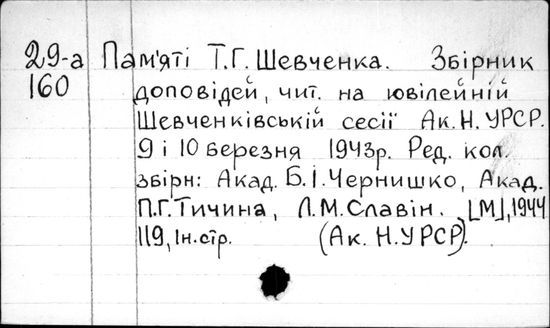 29-а Пам'яті Т.Г. Шевченка. Збірник
160 доповідей, чит. на ювілейній
Шевченківській сесії Ак. Н. УРСР.
9 і 10 березня 1943р. Ред. кол.
збірн: Акад. Б.І. Чернишко, Акад.
П.Г. Тичина, Л.М. Славін. [М], 1944
119, Ін. стр. (Ак. Н. УРСР).